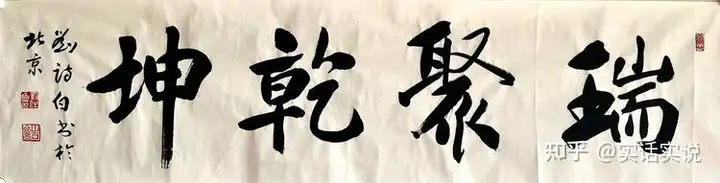 瑞聚乾坤
劉詩白书於
北京
知乎 @实话实说